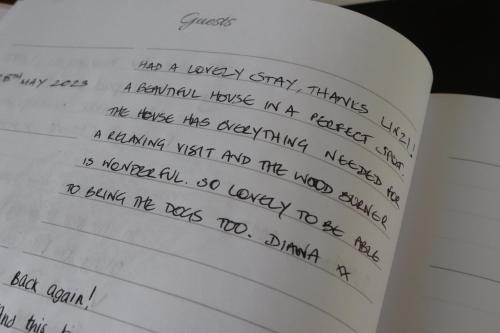 Guests
HAD A LOVELY STAY, THANKS LINZI!
25TH MAY 2023 A BEAUTIFUL HOUSE IN A PERFECT SPOT.
THE HOUSE HAS EVERYTHING NEEDED FOR
A RELAXING VISIT AND THE WOOD BURNER
IS WONDERFUL. SO LOVELY TO BE ABLE
TO BRING THE DOGS TOO. DIANA XX
Back again!
And this